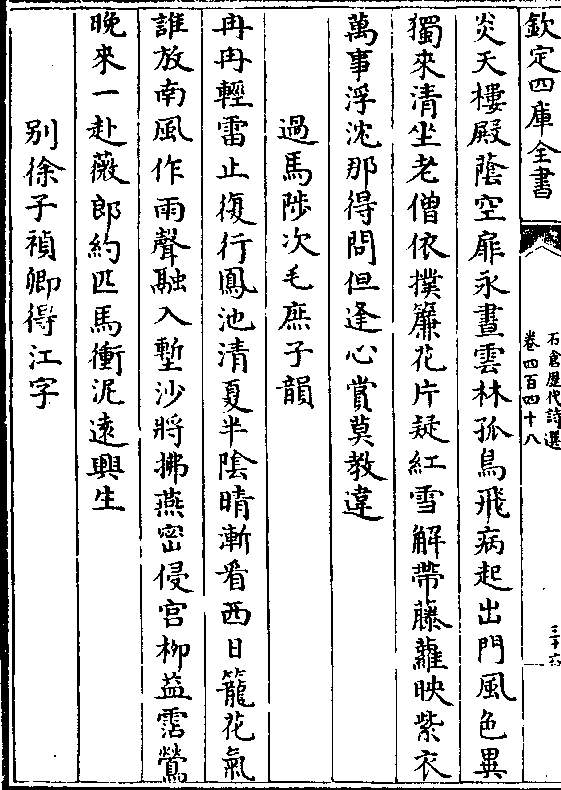 欽定四庫全書
石倉歴代詩選
卷四百四十八
三十六
炎天樓殿陰空扉永晝雲林孤鳥飛病起出門風色異
獨來清坐老僧依撲簾花片疑紅雪解帶藤蘿映紫衣
萬事浮沈那得問但逢心賞莫教違
過馬陟次毛庶子韻
冉冉輕雷止復行鳳池清夏半陰晴漸看西日籠花氣
誰放南風作雨聲融入塹沙將拂燕密侵宮柳益霑鶯
晚來一赴薇郎約匹馬衝泥遠興生
别徐子禎卿得江字